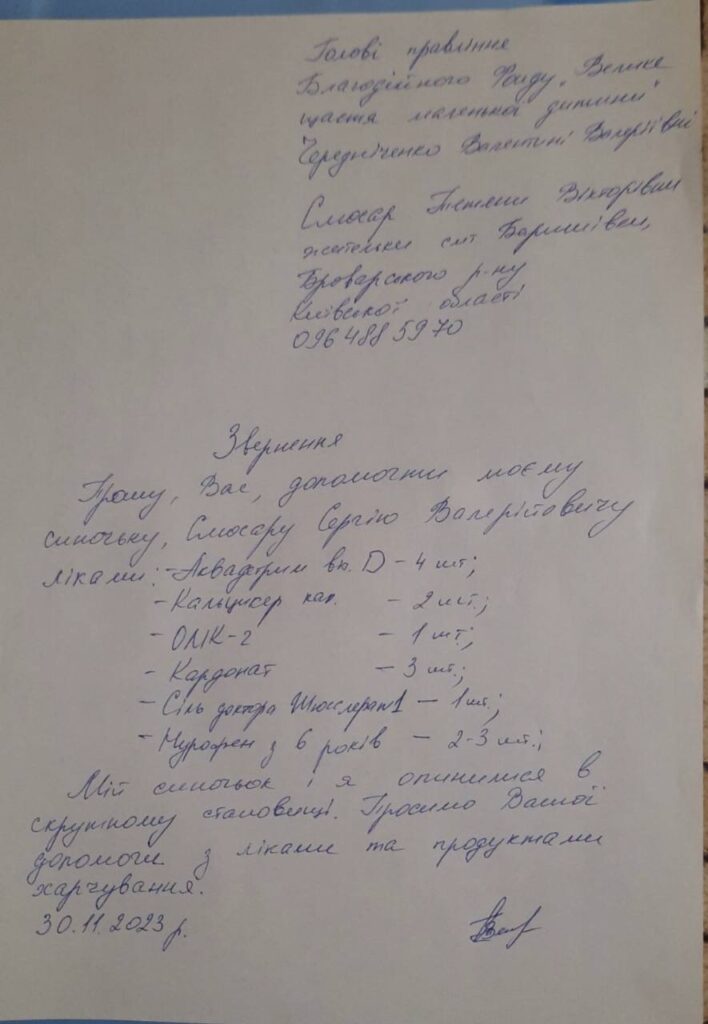 Голові правління
Благодійного Фонду „Велике
щастя маленької дитини"
Чередніченко Валентині Валеріївні
Слюсар Тетяни Вікторівни
жительки смт Баришівки,
Броварського р-ну
Київської області
096 488 59 70
Звернення
Прошу, Вас, допомогти моєму
синочьку, Слюсару Сергію Валерійовичу
ліками: - Аквадетрим віт. D - 4 шт;
- Кальцикер - 2 шт.;
- - 1 шт;
- Кардонат - 3 шт.;
- Сіль доктора Шюслера №1 - 1 шт;
- Нурофен з 6 років - 2-3 шт.;
Мій синочьок і я опинилися в
скрутному становищі. Просимо Вашої
допомоги з ліками та продуктами
харчування.
30.11.2023 р.